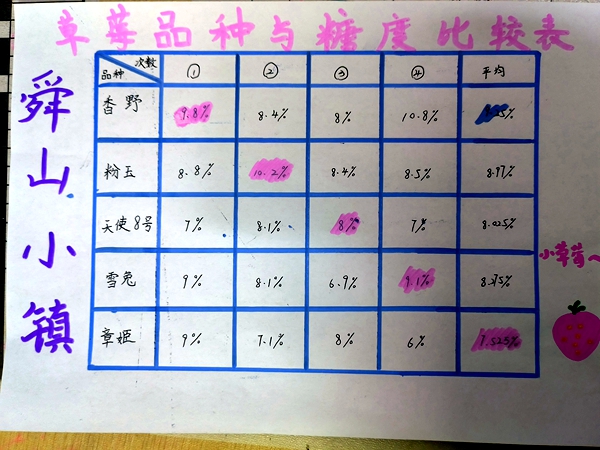 草莓品种与糖度比较表
舜山小镇
次数 品种 ① ② ③ ④ 平均
香野 9.8% 8.4% 8% 10.8%
粉玉 8.8% 10.2% 8.4% 8.5% 8.97%
天使8号 7% 8.1% 8% 7% 8.025%
雪兔 9% 8.1% 6.9% 9.1% 8.275%
章姬 9% 7.1% 8% 6% 7.525%
小草莓~